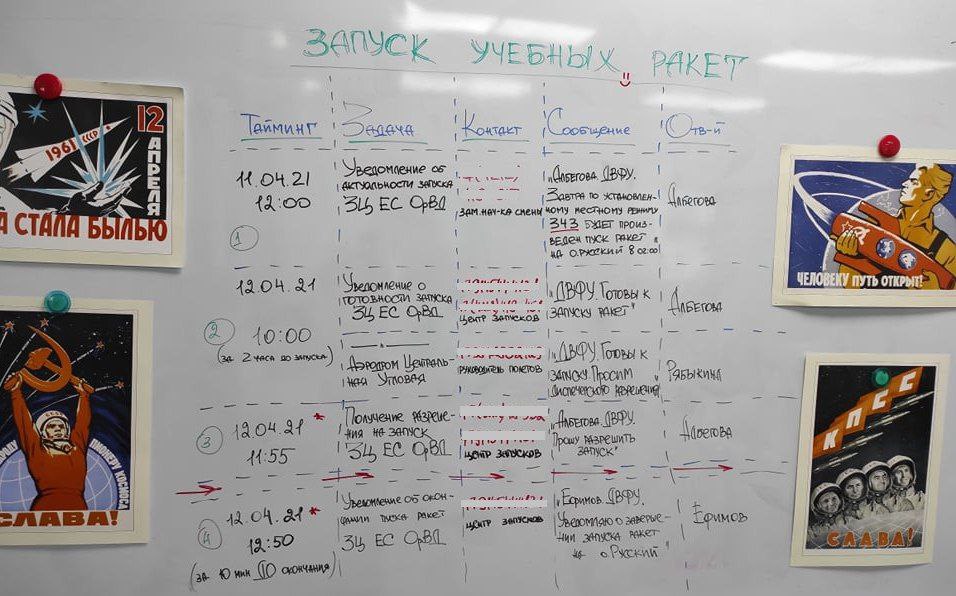 ЗАПУСК УЧЕБНЫХ РАКЕТ
Тайминг
Задача
Контакт
Сообщение
Отв-й
11.04.21
12:00
1
Уведомление об
актуальности запуска
ЗЦ ЕС ОрВД
зам.нач-ка смены
"Албегова. ДВФУ.
Завтра по установлен-
ному местному режиму
343 будет произ-
веден пуск ракет
на о.Русский в 02:00"
Албегова
12.04.21
2
10:00
(за 2 часа до запуска)
Уведомление о
готовности запуска
ЗЦ ЕС ОрВД
центр запусков
"ДВФУ. Готовы к
запуску ракет"
Албегова
Аэродром Централь-
ная Угловая
руководитель полетов
"ДВФУ. Готовы к
запуску. Просим
диспетчерского разрешения"
Рябыкина
3
12.04.21 *
11:55
Получение разреше-
ния на запуск
ЗЦ ЕС ОрВД
центр запусков
"Албегова. ДВФУ.
Прошу разрешить
запуск"
Албегова
4
12.04.21 *
12:50
(за 10 мин до окончания)
Уведомление об окон-
чании пуска ракет
ЗЦ ЕС ОрВД
центр запусков
"Ефимов. ДВФУ.
Уведомляю о заверше-
нии запуска ракет
на о.Русский"
Ефимов
12 АПРЕЛЯ
1961 СССР
А СТАЛА БЫЛЬЮ
ПИОНЕРУ КОСМОСА
СЛАВА!
ЧЕЛОВЕКУ ПУТЬ ОТКРЫТ!
КПСС
СЛАВА!